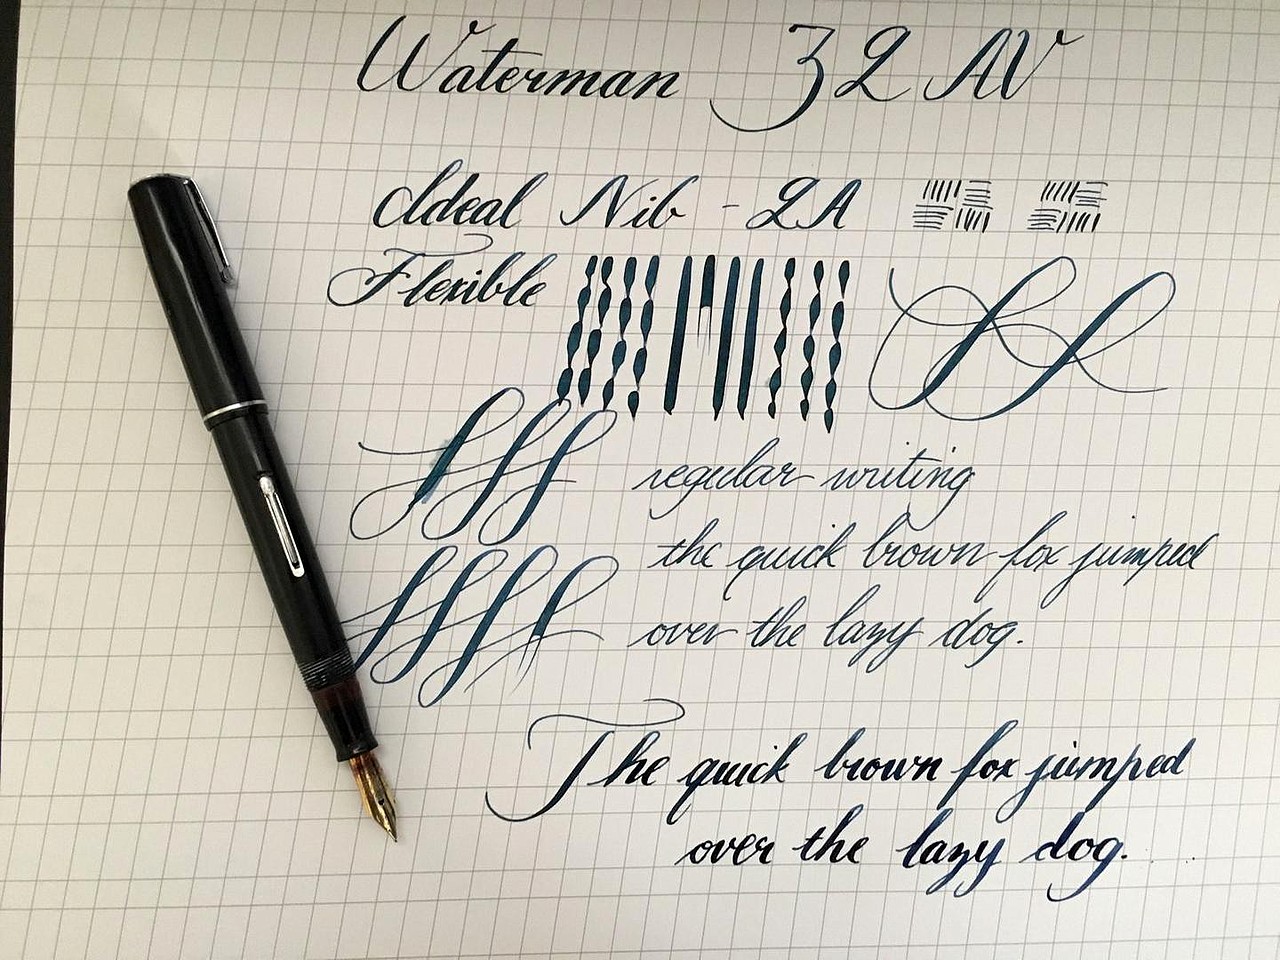 Waterman 32 AV
Ideal Nib - 2A
Flexible
fff
regular writing
ffff
the quick brown fox jumped
over the lazy dog.
The quick brown fox jumped
over the lazy dog.